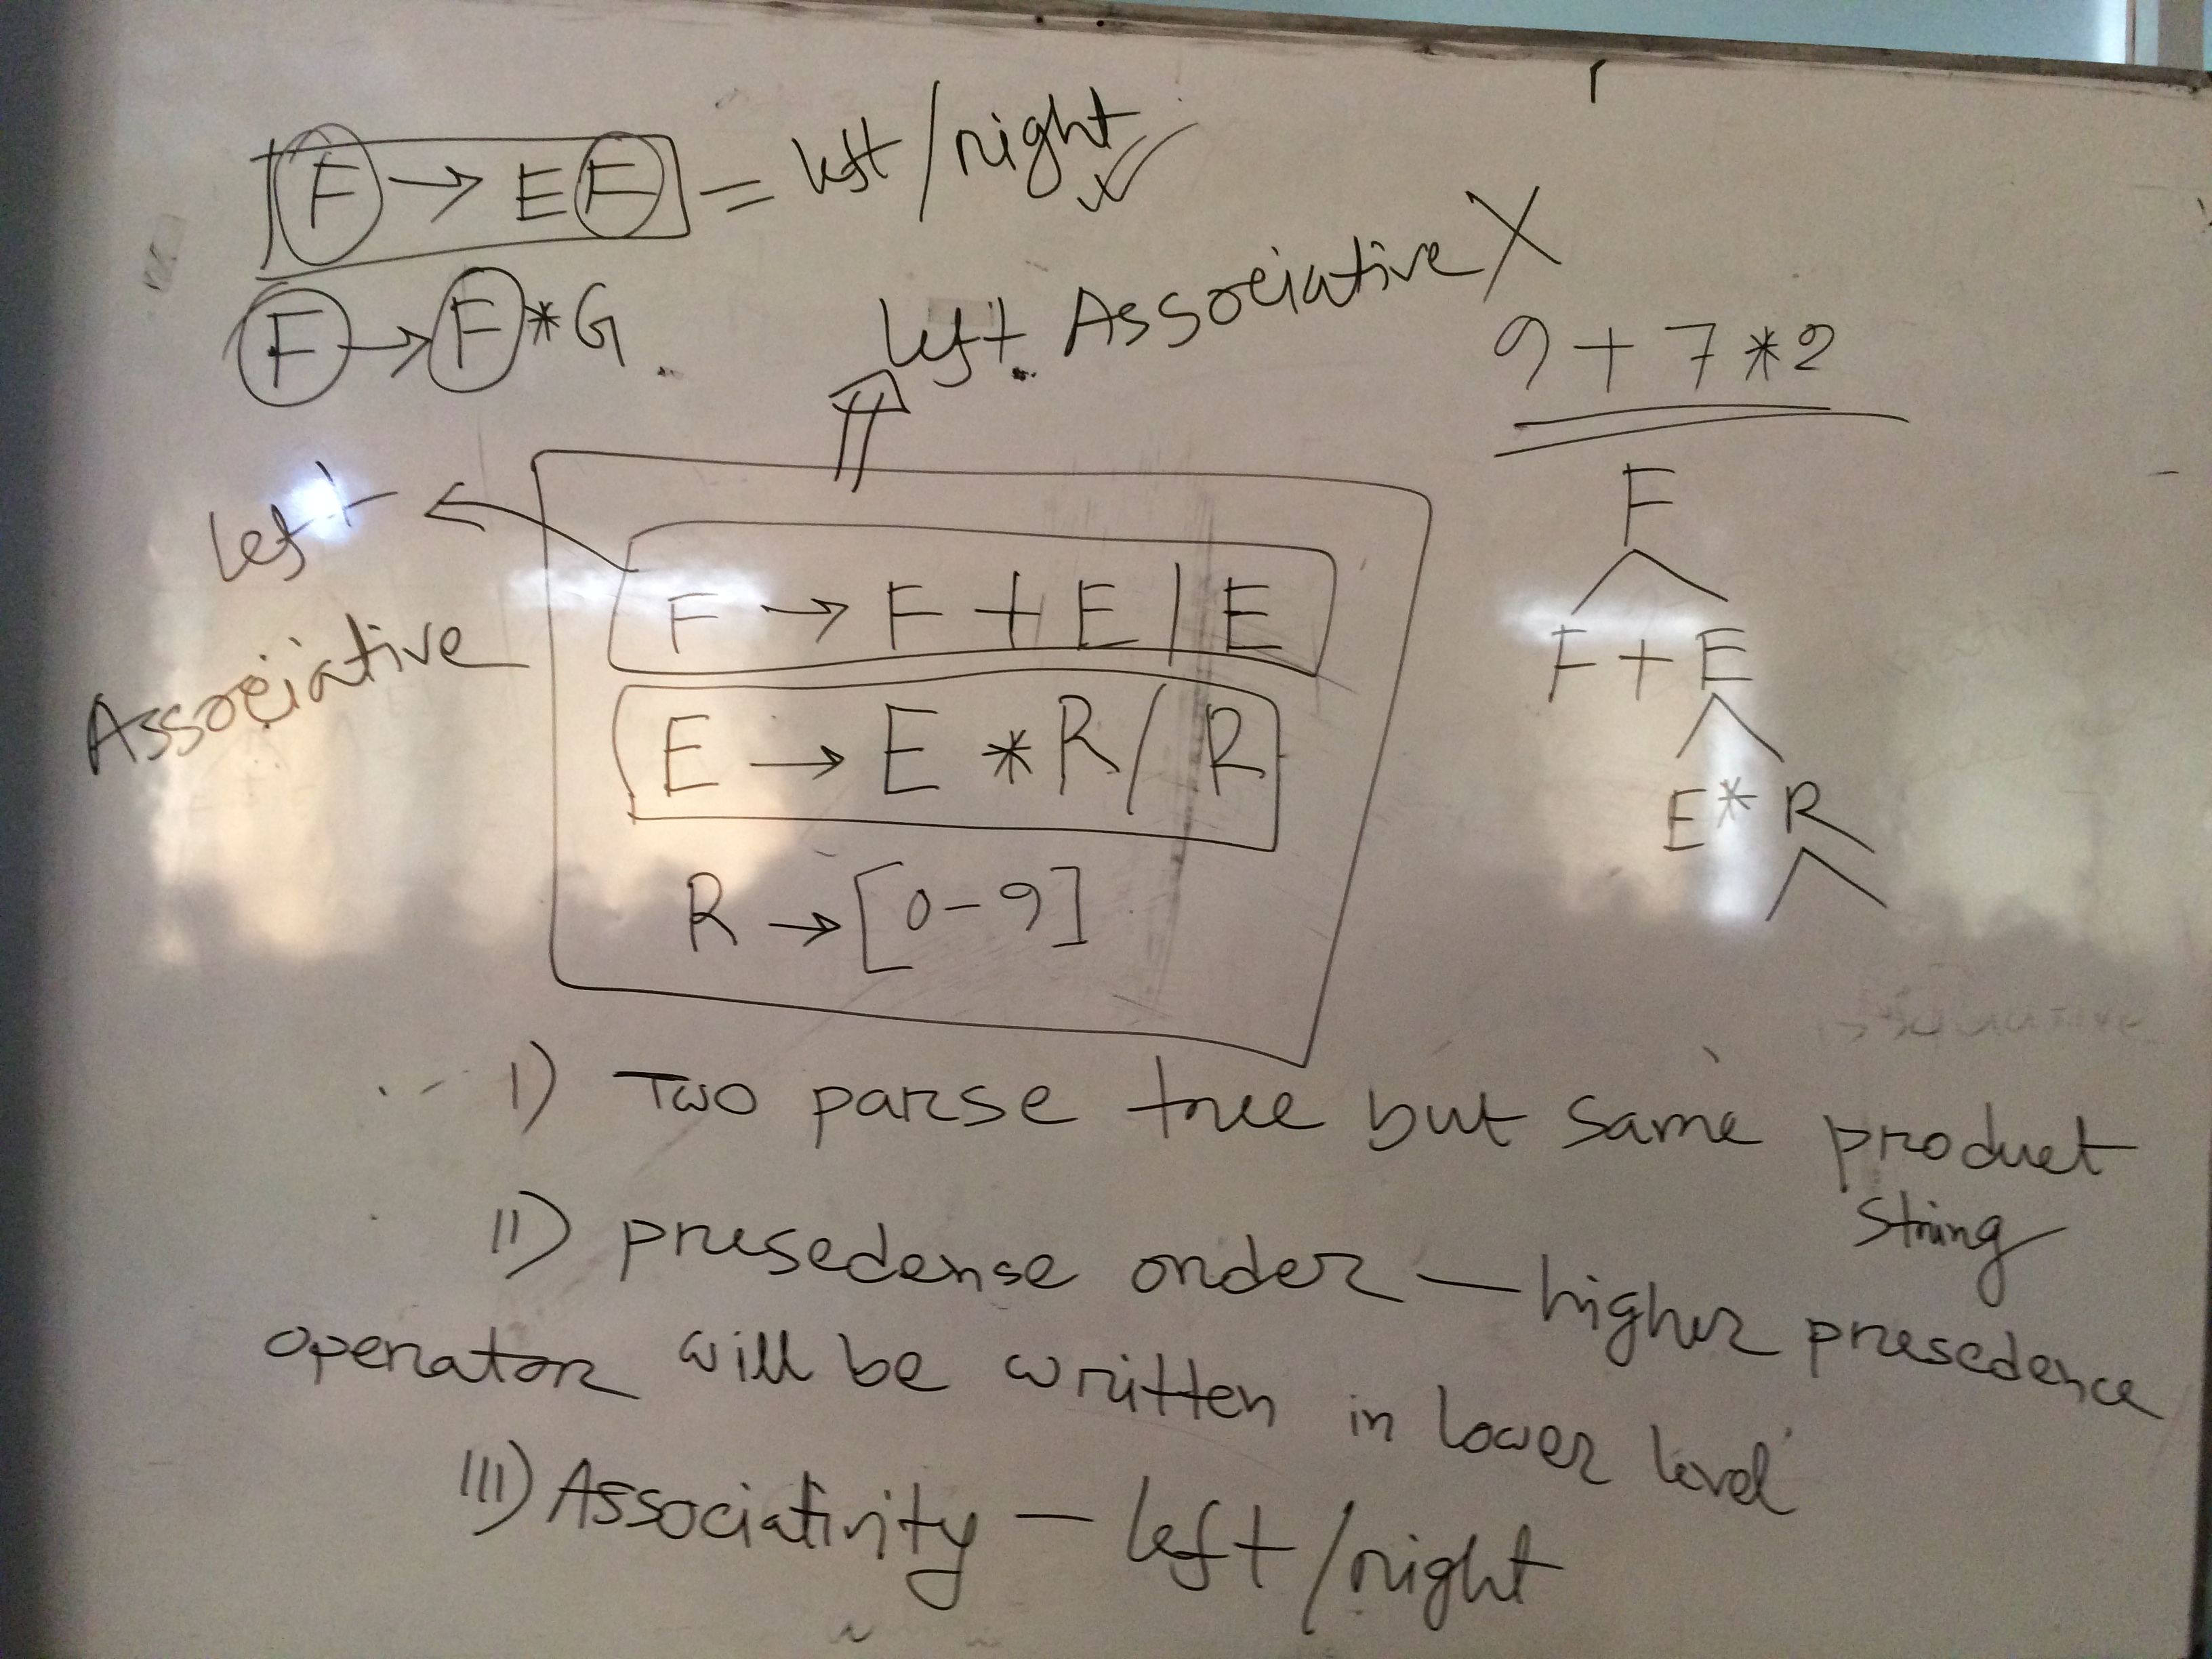 F → EF = left/right ✓
F → F*G
left Associative X
9+7*2
left Associative
F → F + E | E
E → E * R / R
R → [0-9]
F
F + E
E * R
I) Two parse tree but same product string
II) presedense order — higher presedence
operator will be written in lower level
III) Associativity — left/right